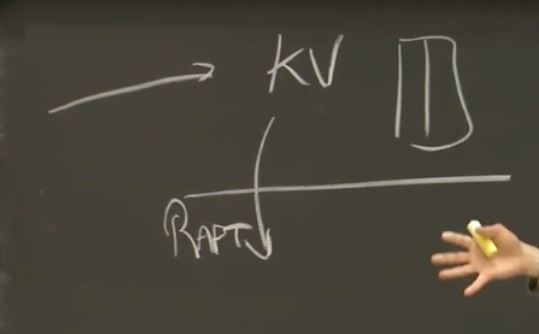 KV
RAFT